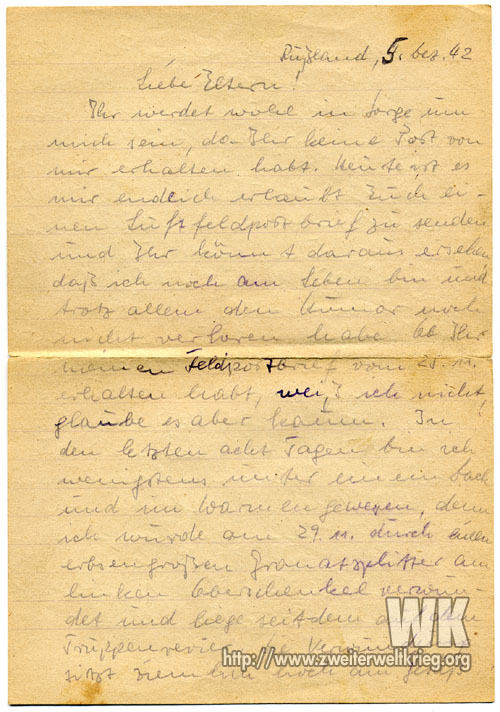 Rußland, 5. Dez. 42
Liebe Eltern!
Ihr werdet wohl in Sorge um
mich sein, da Ihr keine Post von
mir erhalten habt. Heute ist es
mir endlich erlaubt Euch ei-
nen Luftfeldpostbrief zu senden
und Ihr könnt daraus ersehen
daß ich noch am Leben bin und
trotz allem den Humor noch
nicht verloren habe Ob Ihr
meinen Feldpostbrief vom 25. 11.
erhalten habt, weiß ich nicht,
glaube es aber kaum. In
den letzten acht Tagen bin ich
wenigstens unter einem Dach
und im Warmen gewesen, denn
ich wurde am 29. 11. durch einen
erbsengroßen Granatsplitter am
linken Oberschenkel verwun-
det und liege seitdem auf dem
Truppenrevier. Die
sitzt ziemlich hoch am Gesäß
WK
http://www.zweiterweltkrieg.org